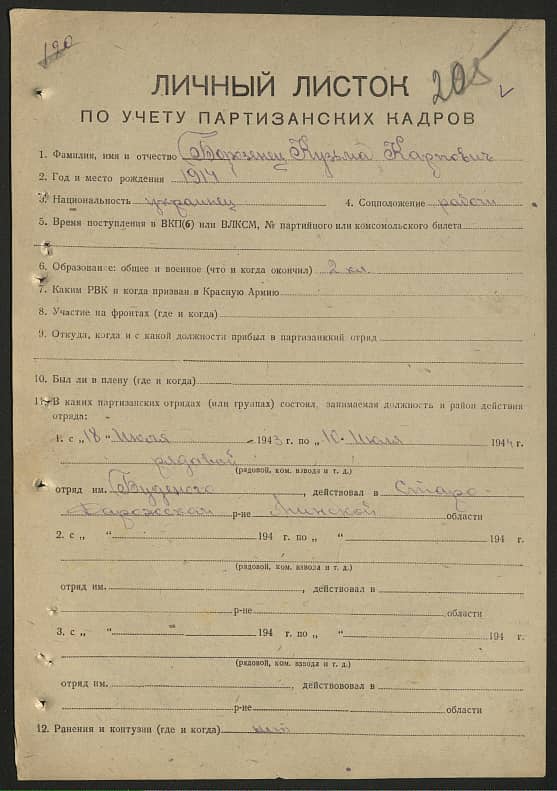 190
205
ЛИЧНЫЙ ЛИСТОК
ПО УЧЕТУ ПАРТИЗАНСКИХ КАДРОВ
1. Фамилия, имя и отчество Борженец Кузьма Карпович
2. Год и место рождения 1914
3. Национальность украинец 4. Соцположение рабочи
5. Время поступления в ВКП(б) или ВЛКСМ, № партийного или комсомольского билета
6. Образование: общее и военное (что и когда окончил) 2 кл.
7. Каким РВК и когда призван в Красную Армию
8. Участие на фронтах (где и когда)
9. Откуда, когда и с какой должности прибыл в партизанкий отряд
10. Был ли в плену (где и когда)
11. В каких партизанских отрядах (или группах) состоял, занимаемая должность и район действия
отряда:
1. с „18" Июля 1943 г. по „10" Июля 1944 г.
рядовой
(рядовой, ком. взвода и т. д.)
отряд им. Буденого, действовал в Старо-
Дарожской р-не Минской области
2. с „ " 194 г. по „ " 194 г.
(рядовой, ком. взвода и т. д.)
отряд им. , действовал в
р-не области
3. с „ " 194 г. по „ " 194 г.
(рядовой, ком. взвода и т. д.)
отряд им. , действововал в
р-не области
12. Ранения и контузии (где и когда) нет